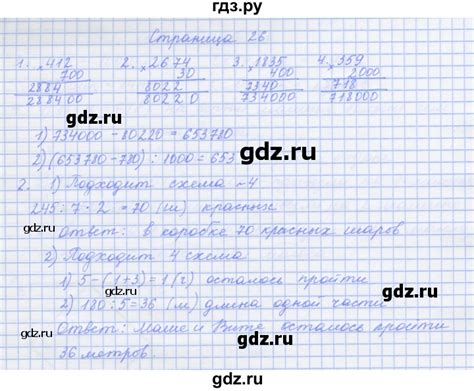 гдз.ру
Страница 26
1. × 412 2. × 2674 3. × 1835 4. × 359
700 30 400 2000
2884 8022 7340 718
288400 80220 734000 718000
gdz.ru
1) 734000 - 80220 = 653780
2) (653780 - 780) : 1000 = 653
gdz.ru
2. 1) Подходит схема №4
245 : 7 · 2 = 70 (ш) красных
gdz.ru
Ответ: в коробке 70 красных шаров
gdz.ru
2) Подходит 4 схема
1) 5 - (1+3) = 1 (г) осталось пройти
gdz.ru
2) 180 : 5 = 36 (м) длина одной части
gdz.ru
Ответ: Маше и Вите осталось пройти
36 метров.
gdz.ru